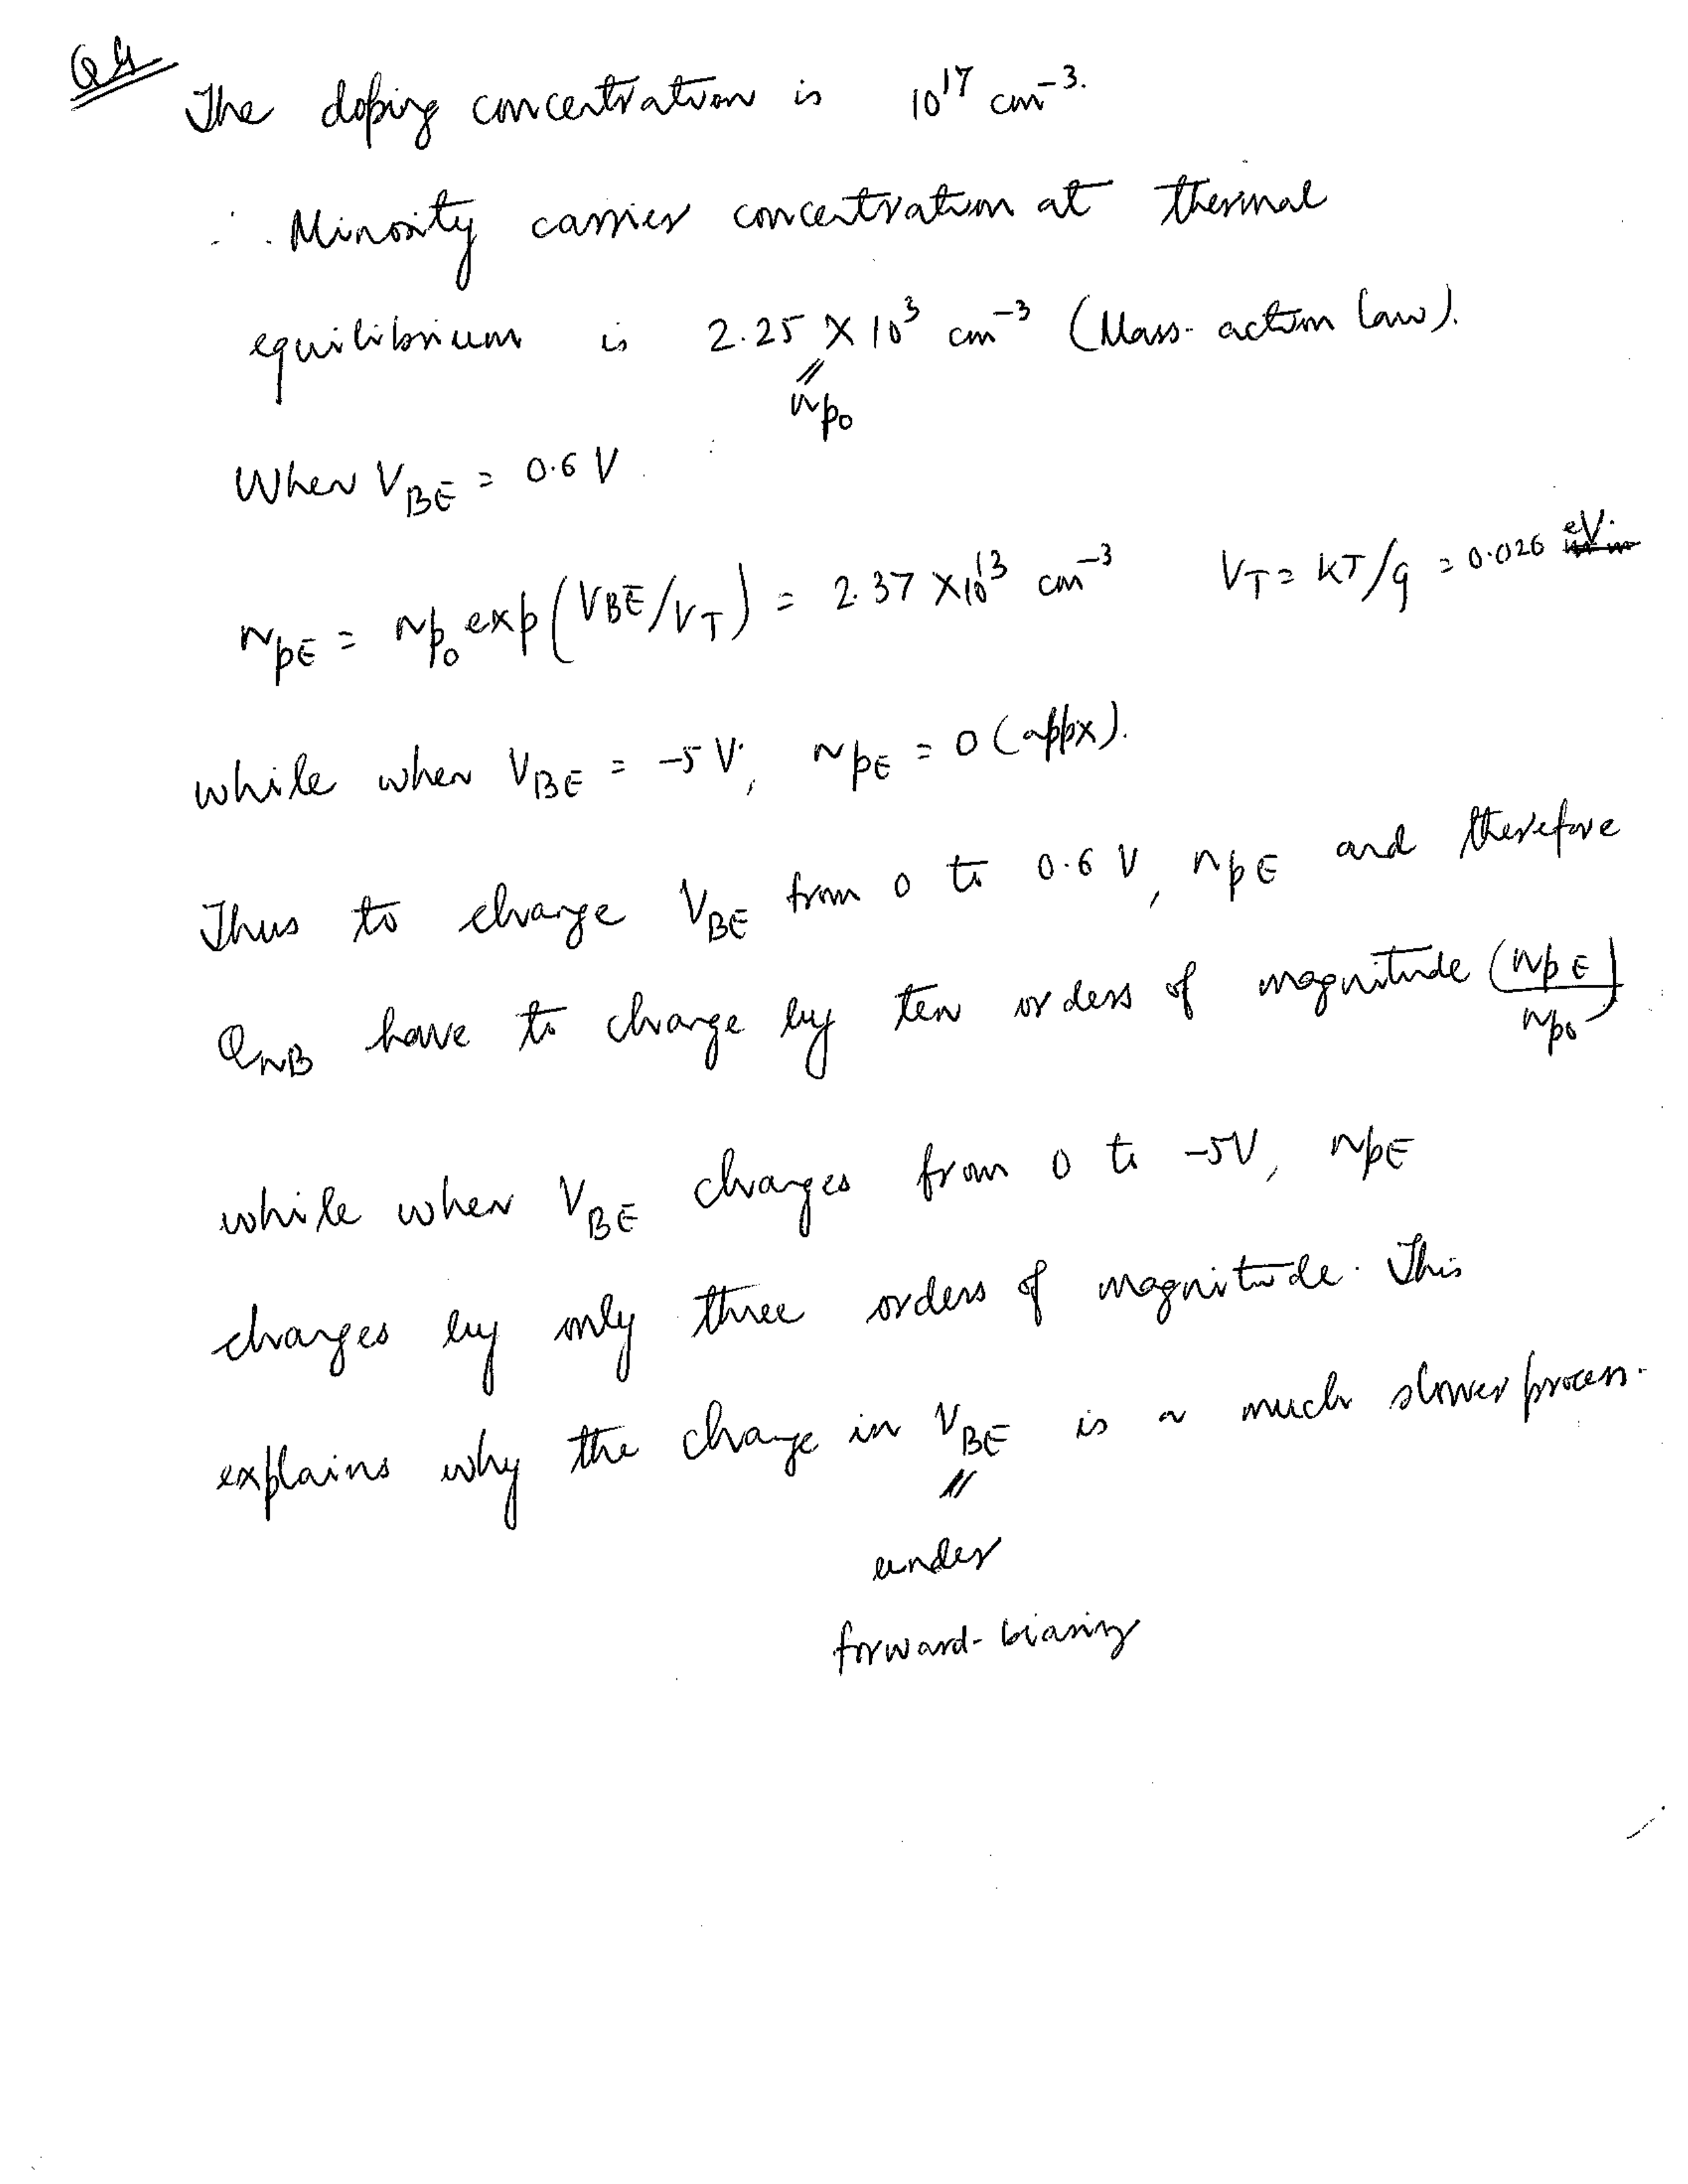 Q4
The doping concentration is 10^17 cm^-3.
∴ Minority carrier concentration at thermal
equilibrium is 2.25 X 10^3 cm^-3 (Mass-action law).
n_p0
When V_BE = 0.6 V
n_pE = n_p0 exp(V_BE/V_T) = 2.37 X10^13 cm^-3 V_T = KT/q = 0.026 eV.
while when V_BE = -5 V, n_pE = 0 (appx).
Thus to change V_BE from 0 to 0.6 V, n_pE and therefore
Q_NB have to change by ten orders of magnitude (n_pE/n_p0)
while when V_BE changes from 0 to -5V, n_pE
changes by only three orders of magnitude. This
explains why the change in V_BE is a much slower process.
under
forward-biasing